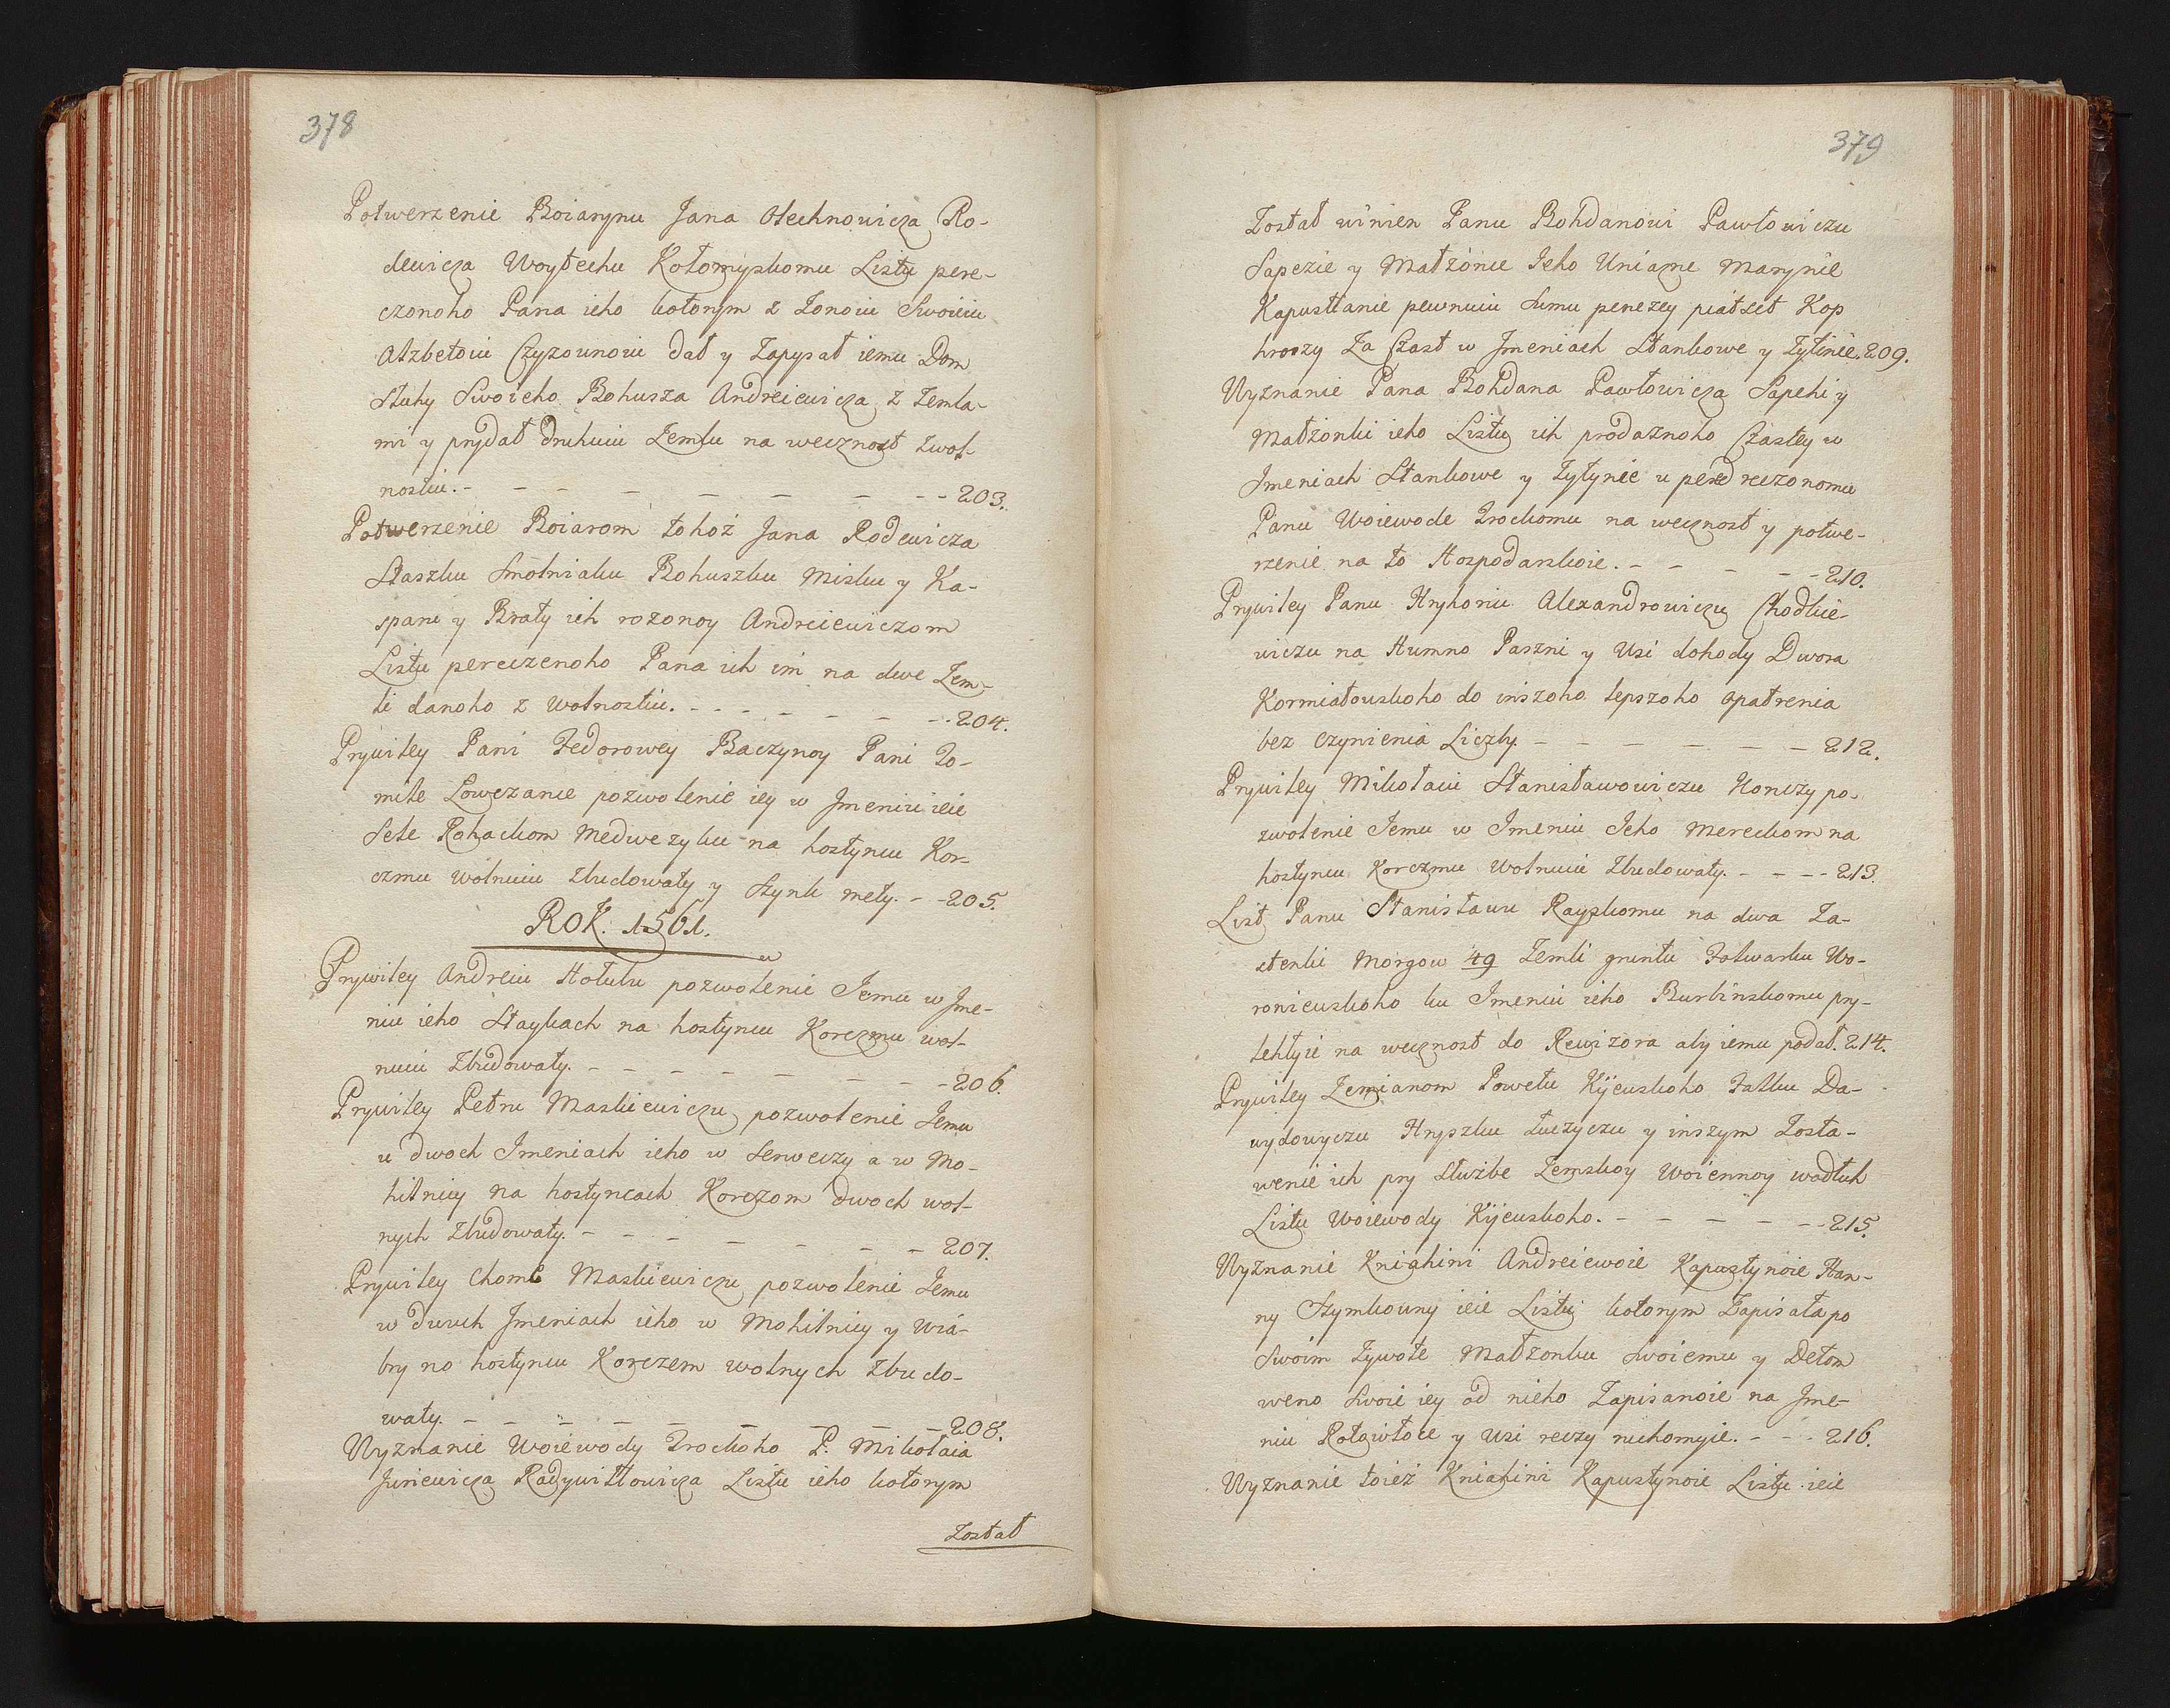 378
Potwerzenie Boiarynu Jana Olechnowicza Ro-
dewicza Woytechu Kołomyskomu Listu pere-
czonoho Pana ieho kotorym z Zonoiu Swoieiu
Alzbetoiu Czyzownoiu dał y Zapysał iemu Dom
Słuhy Swoieho Bohusza Andreiewicza z Zemla-
mi y prydał druhuiu Zemlu na wecznost z wol-
nostiu. - - - - - - - - 203.
Potwerzenie Boiarom tohoż Jana Rodewicza
Staszku Smolniaku Bohuszku Misku y Ka-
spani y Braty ich rozonoy Andreiewiczom
Listu pereczenoho Pana ich im na dwe Zem-
li danoho z Wolnostiu. - - - - - - - 204.
Prywiley Pani Fedorowey Baczynoy Pani To-
mile Łowczanie pozwolenie iey w Jmeniu ieie
Sele Rohackom Medwezyku na hostyncu Kor-
czmu wolnuiu zbudowaty y Szynk mety. - - 205.
ROK. 1561.
Prywiley Andreiu Hołubu pozwolenie Jemu w Jme-
niu ieho Staykach na hostyncu Korczmu wol-
nuiu Zbudowaty. - - - - - - - - 206.
Prywiley Petru Maskiewiczu pozwolenie Jemu
u dwoch Jmeniach ieho w Serweczy a w Mo-
hilnicy na hostyncach Korczom dwoch wol-
nych Zbudowaty. - - - - - - - 207.
Prywiley Chome Maskiewiczu pozwolenie Jemu
w dwuch Jmeniach ieho w Mohilnicy y Wia-
bry no hostyncu Korczem wolnych Zbudo-
waty. - - - - - - - - 208.
Wyznanie Woiewody Trockoho P. Mikołaia
Juriewicza Radywiłłowicza Listu ieho kotorym
Został
379
Został winien Panu Bohdanowi Pawłowiczu
Sapezie y Małżonce Jeho Kniazne Marynie
Kapustianie pewnuiu Sumu penezey piatset Kop
hroszy Za Czast w Jmeniach Stankowe y Zytinie. 209.
Wyznanie Pana Bohdana Pawłowicza Sapehi y
Małżonki ieho Listu ich prodaznoho Czastey w
Jmeniach Stankowe y Zytynie u pered reczonomu
Panu Woiewode Trockomu na wecznost y potwe-
rzenie na to Hospodarskoie. - - - - - 210.
Prywiley Panu Hryhoriu Alexandrowiczu Chodkie-
wiczu na Humno Paszni y Usi dohody Dwora
Kormiałouskoho do inszoho lepszoho opatrenia
bez czynienia Liczby. - - - - - - 212.
Prywiley Mikołaiu Stanisławowiczu Honczy po-
zwolenie Jemu w Jmeniu Jeho Mereckom na
hostyncu Korczmu Wolnuiu Zbudowaty. - - - - 213.
List Panu Stanisławu Rayskomu na dwa Za-
stenki Morgow 49 Zemli gruntu Folwarku Wo-
ronieuskoho ku Jmeniu ieho Burbinskomu pry-
lehłyie na wecznost do Rewizora aby iemu podał. 214.
Prywiley Zemianom Powetu Kijeuskoho Fatku Da-
wydowyczu Hryszku Łuczyczu y inszym Zosta-
wenie ich pry Służbe Zemskoy Woiennoy wodłuh
Listu Woiewody Kijeuskoho. - - - - - - 215.
Wyznanie Kniahini Andreiewoie Kapustynoie Han-
ny Szymkouny ieie Listu kotorym Zapisała po
Swoim Zywote Małżonku Swoiemu y Detom
weno Swoie iey od nieho Zapisanoie na Jme-
niu Rołowłoce y Usi reczy ruchomyie. - - - 216.
Wyznanie toież Kniahini Kapustynoie Listu ieie